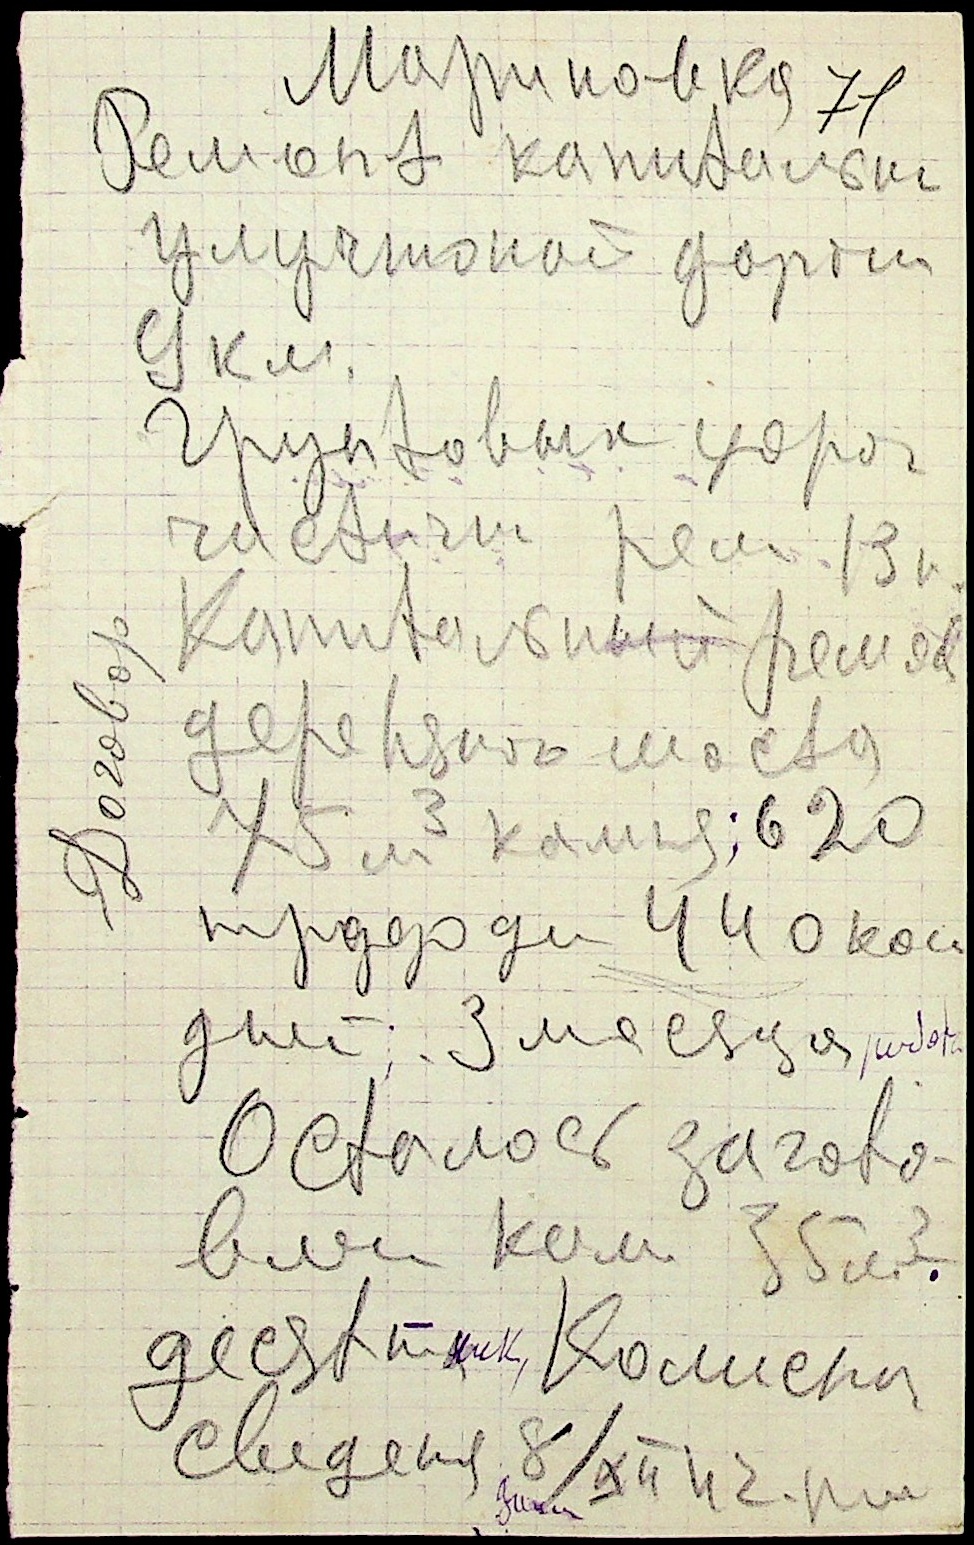 Мариновка 71
Ремонт капитальн
улучшоной дороги
9 км.
Грунтовых дорог
частичн рем. 13 к.
Капитальный ремон
деревяного моста
75 м³ камня; 620
трудодн 440 кон
дней; 3 месяца работи
Осталось загото-
влен кам 35 м³.
десятник,
сведеня 8/XII 42.
дани
Договор